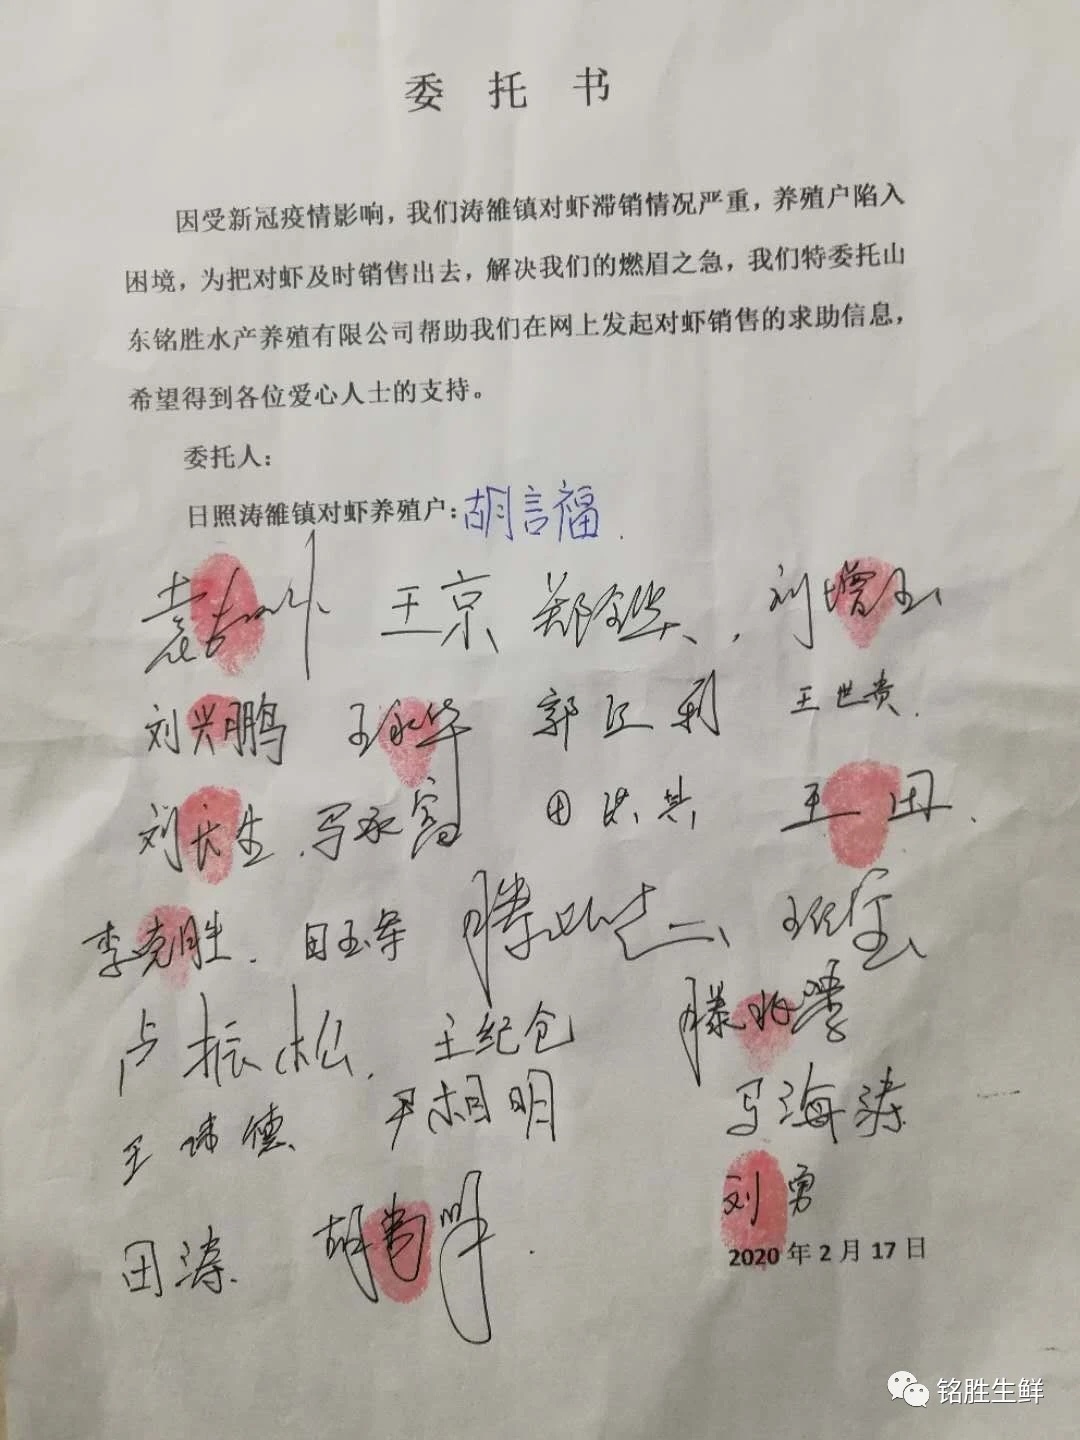 委 托 书
因受新冠疫情影响，我们涛雒镇对虾滞销情况严重，养殖户陷入
困境，为把对虾及时销售出去，解决我们的燃眉之急，我们特委托山
东铭胜水产养殖有限公司帮助我们在网上发起对虾销售的求助信息，
希望得到各位爱心人士的支持。
委托人：
日照涛雒镇对虾养殖户：胡言福
王京 刘增玉
刘兴鹏 王永华 王世贵
刘长生 马永富 王田
李克胜
卢振松 王纪仓
尹相明 马海涛
刘勇
田涛
2020 年 2 月 17 日
铭胜生鲜